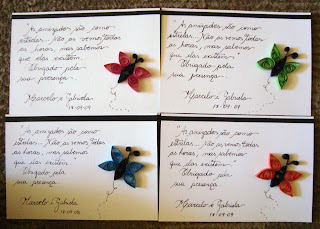 "As amizades são como
estrelas... Não as vemos todas
as horas, mas sabemos
que elas existem."
Obrigado pela
sua presença.
Marcelo e Fabiola
18.09.09
"As amizades são como
estrelas... Não as vemos todas
as horas, mas sabemos
que elas existem."
Obrigado pela
sua presença.
Marcelo e Fabiola
18.09.09
"As amizades são como
estrelas... Não as vemos todas
as horas, mas sabemos
que elas existem..."
Obrigado pela
sua presença.
Marcelo e Fabiola
18.09.09
"As amizades são como
estrelas... Não as vemos todas
as horas, mas sabemos
que elas existem."
Obrigado pela
sua presença.
Marcelo e Fabiola
18.09.09